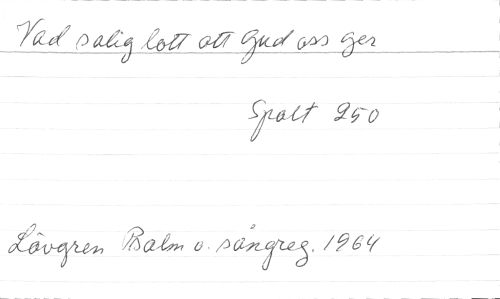 Vad salig lott att Gud oss ger
Spalt 250
Lövgren Psalm o. sångreg. 1964